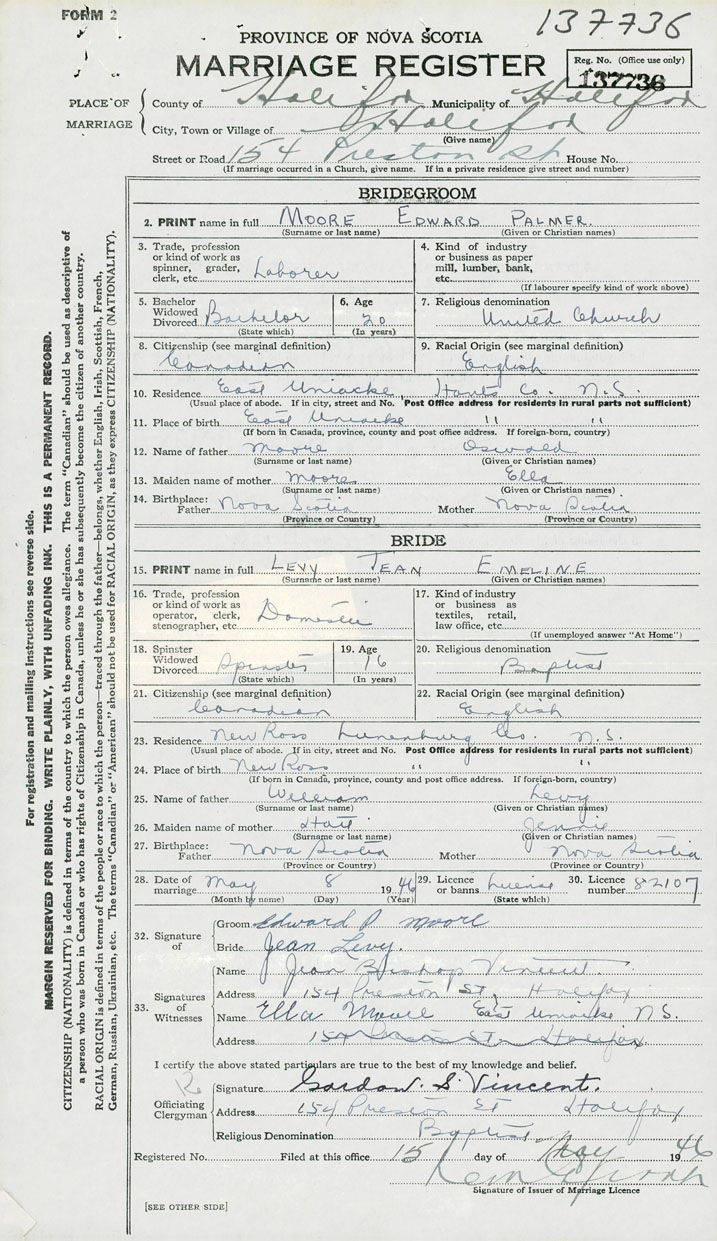 FORM 2
137736
PROVINCE OF NOVA SCOTIA
MARRIAGE REGISTER
Reg. No. (Office use only)
137736
PLACE OF MARRIAGE
County of Halifax Municipality of Halifax
City, Town or Village of Halifax
(Give name)
Street or Road 154 Preston St House No.
(If marriage occurred in a Church, give name. If in a private residence give street and number)
BRIDEGROOM
2. PRINT name in full MOORE EDWARD PALMER.
(Surname or last name) (Given or Christian names)
3. Trade, profession or kind of work as spinner, grader, clerk, etc. Laborer
4. Kind of industry or business as paper mill, lumber, bank, etc.
(If labourer specify kind of work above)
5. Bachelor Widowed Divorced Bachelor
(State which)
6. Age 20
(In years)
7. Religious denomination
United Church
8. Citizenship (see marginal definition)
Canadian
9. Racial Origin (see marginal definition)
English
10. Residence East Uniacke Hants Co. N.S.
(Usual place of abode. If in city, street and No. Post Office address for residents in rural parts not sufficient)
11. Place of birth East Uniacke " "
(If born in Canada, province, county and post office address. If foreign-born, country)
12. Name of father Moore Oswald
(Surname or last name) (Given or Christian names)
13. Maiden name of mother Moore Ella
(Surname or last name) (Given or Christian names)
14. Birthplace: Father Nova Scotia Mother Nova Scotia
(Province or Country) (Province or Country)
BRIDE
15. PRINT name in full LEVY JEAN EMELINE
(Surname or last name) (Given or Christian names)
16. Trade, profession or kind of work as operator, clerk, stenographer, etc. Domestic
17. Kind of industry or business as textiles, retail, law office, etc.
(If unemployed answer "At Home")
18. Spinster Widowed Divorced Spinster
(State which)
19. Age 16
(In years)
20. Religious denomination
Baptist
21. Citizenship (see marginal definition)
Canadian
22. Racial Origin (see marginal definition)
English
23. Residence New Ross Lunenburg Co. N.S.
(Usual place of abode. If in city, street and No. Post Office address for residents in rural parts not sufficient)
24. Place of birth New Ross " "
(If born in Canada, province, county and post office address. If foreign-born, country)
25. Name of father William Levy
(Surname or last name) (Given or Christian names)
26. Maiden name of mother Jennie
(Surname or last name) (Given or Christian names)
27. Birthplace: Father Nova Scotia Mother Nova Scotia
(Province or Country) (Province or Country)
28. Date of marriage May 8 1946
(Month by name) (Day) (Year)
29. Licence or banns license
(State which)
30. Licence number 82107
32. Signature of
Groom Edward P Moore
Bride Jean Levy.
33. Signatures of Witnesses
Name Jean Bishop Vincent
Address 154 Preston St, Halifax
Name Ella Moore East Uniacke N.S.
Address 154 Preston St Halifax
I certify the above stated particulars are true to the best of my knowledge and belief.
Officiating Clergyman
Signature Gordon S. Vincent.
Address 154 Preston St Halifax
Religious Denomination Baptist
Registered No. Filed at this office 15 day of May 1946
Signature of Issuer of Marriage Licence
[SEE OTHER SIDE]
For registration and mailing instructions see reverse side.
MARGIN RESERVED FOR BINDING. WRITE PLAINLY, WITH UNFADING INK. THIS IS A PERMANENT RECORD.
CITIZENSHIP (NATIONALITY) is defined in terms of the country to which the person owes allegiance. The term "Canadian" should be used as descriptive of
a person who was born in Canada or who has rights of Citizenship in Canada, unless he or she has subsequently become the citizen of another country.
RACIAL ORIGIN is defined in terms of the people or race to which the person—traced through the father—belongs, whether English, Irish, Scottish, French,
German, Russian, Ukrainian, etc. The terms "Canadian" or "American" should not be used for RACIAL ORIGIN, as they express CITIZENSHIP (NATIONALITY).